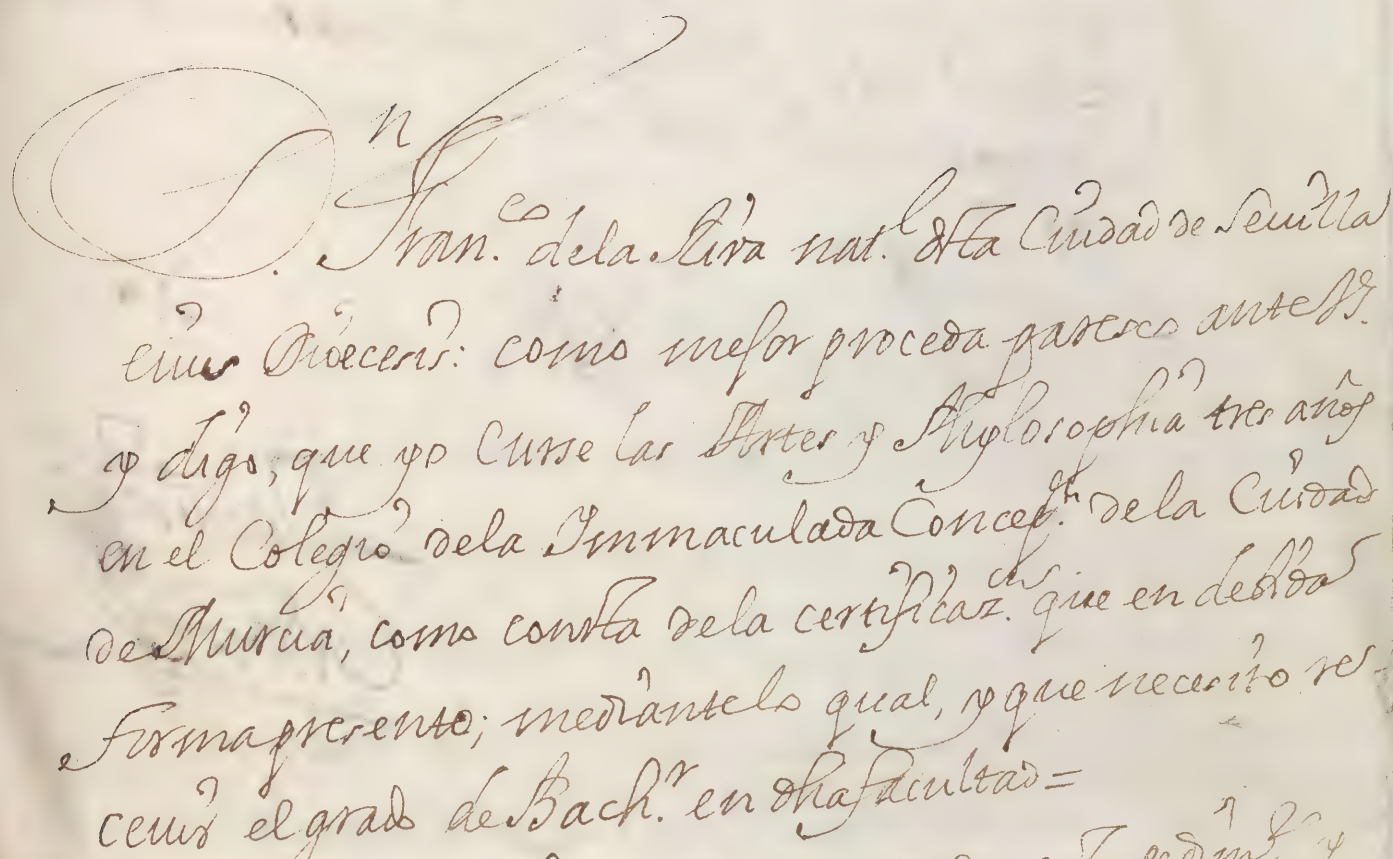 Dn. Fran.co de la Riva nat.l desta Ciudad de Sevilla
eius Dioecesis: como mejor proceda paresco ante V.
y digo, que yo Curse las Artes y Phylosophia tres años
en el Colegio de la Immaculada Concep.n de la Ciudad
de Murcia, como consta de la certificaz.on que en debida
forma presento; mediante lo qual, y que necesito re-
cevir el grado de Bach.r en dha facultad=